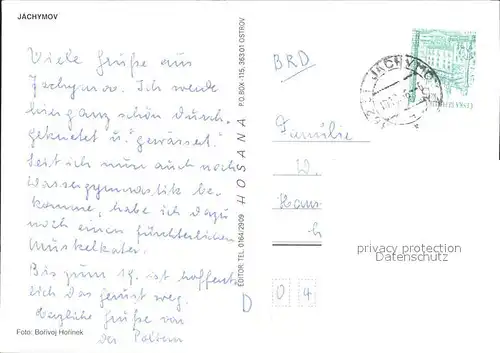 JÁCHYMOV
Viele Grüße aus
Jachymov. Ich werde
hier ganz schön durch-
geknetet u. "gewässert".
Seit ich nun auch noch
Wassergymnastik be-
komme, habe ich dazu
noch einen fürchterlichen
Muskelkater.
Bis zum 19. ist hoffent-
lich das Gerüst weg.
Herzliche Grüße von
der
Foto: Bořivoj Hořínek
EDITOR: TEL. 0164/2909 HOSANA P.O.BOX-115, 363 01 OSTROV
BRD
JÁCHYMOV
Familie
W.
Haus
D
0 4
privacy protection
Datenschutz